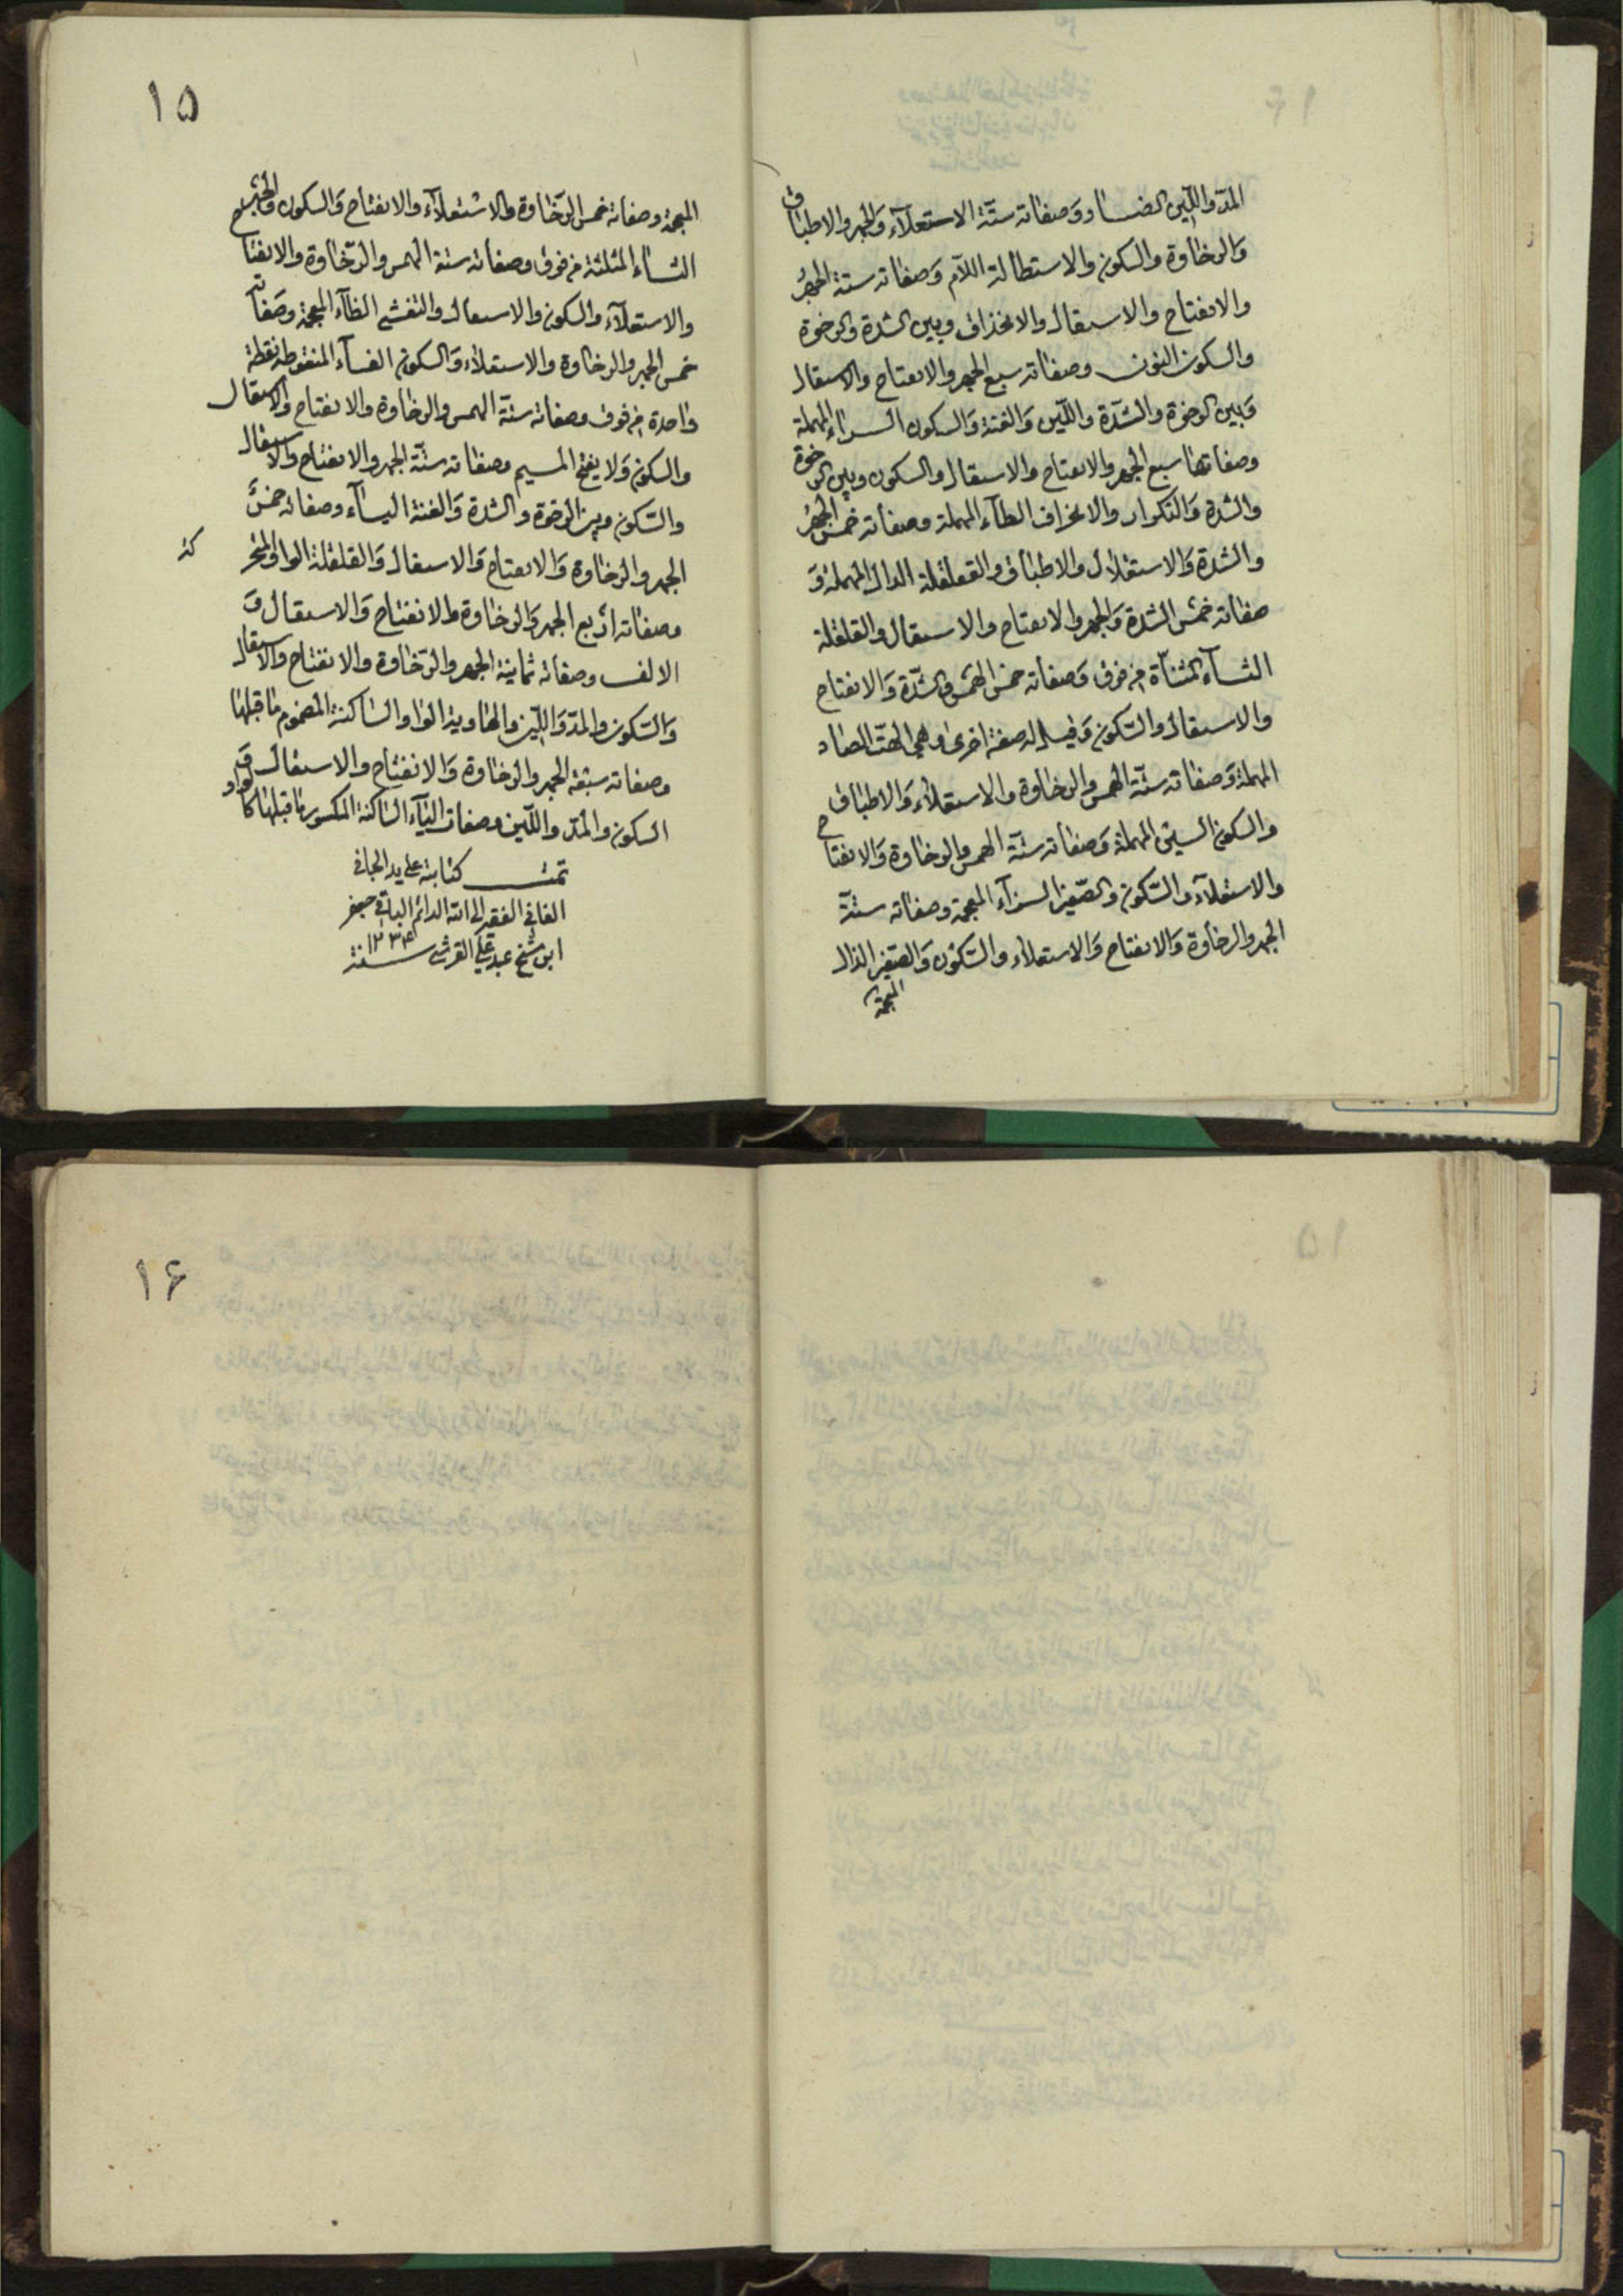 المدّ واللّين الضاد وَصفاته ستّة الاستعلآء وَالجهر والاطباق
وَالرخاوة والسكون والاستطالة اللّام وَصفاته ستة الجهرُ
والانفتاح والاستفال والانحذاف وبين الشدة والرخوة
والسكون النون وصفاته سبع الجهر والانفتاح والاستفال
وَبين الرخوة والشدّة واللّين وَالغنة وَالسكون الراء المهملة
وصفاتها سبع الجهر والانفتاح والاستفال والسكون وبين الرخوة
والشدة وَالتكرار والانحراف الطآء المهملة وصفاته خمس الجهرُ
والشدة وَالاستقلال والاطباق والقلقلة الدال المهملة وَ
صفاته خمسُ الشدة وَالجهر والانفتاح والاستفال والقلقلة
التآء المثنآة من فوق وَصفاته خمس الهمس والشدّة وَالانفتاح
والاستفال والسّكون وَقيل له صفة اخرى وهي الهتّ الصاد
المهملة وَصفاته ستّة الهمس والرخاوة والاستعلاء وَالاطباق
والسكون السين المهملة وَصفاته ستّة الهمس والرخاوة وَالانفتاح
والاستعلآء والسّكون والصّفير الزآء المعجمة وصفاته ستّة
الجهر والرخاوة وَالانفتاح وَالاستعلاء والسّكون وَالصّفير الذال
المعجمة
۱۵
المعجمة وصفاته خمس الرّخاوة والاستعلآء والانفتاح وَالسكون والجهر
الثاء المثلثة من فوق وصفاته ستة الهمس والرّخاوة والانفتاح
والاستعلآء والسكون والاستفال والتفشي الظآء المعجمة وصَفاته
خمس الجهر والرخاوة والاستعلاء وَالسكون الفآء المنقوطه نقطة
واحدة من فوق وصفاته ستّة الهمس والرخاوة والانفتاح والاستفال
والسكون وَلا يفتح الميم وصفاته ستّة الجهر والانفتاح والاستفال
والسّكون وبين الرخوة والشدة وَالغنة اليآء وصفاته خمسٌ
الجهر والرخاوة وَالانفتاح وَالاستفال وَالقلقلة الواو المتحركة
وصفاته اربع الجهر وَالرخاوة والانفتاح وَالاستفال وَ
الالف وصفاته ثمانية الجهر والرّخاوة والانفتاح والاستفال
وَالسّكون والمدّ وَاللّين والهاوية الواو السّاكنة المضموم ما قبلها
وصفاته سبعة الجهر والرخاوة وَالانفتاح والاستفال وَ
السكون والمدّ واللّين وصفات اليآء الساكنة المكسور ما قبلها كالواو
تمت كتابته على يد الجاني
الفاني الفقير الى الله الدائم الباقي جعفر
ابن شيخ عبد علي القرشي سنة ۱۲۳۴
۱۶